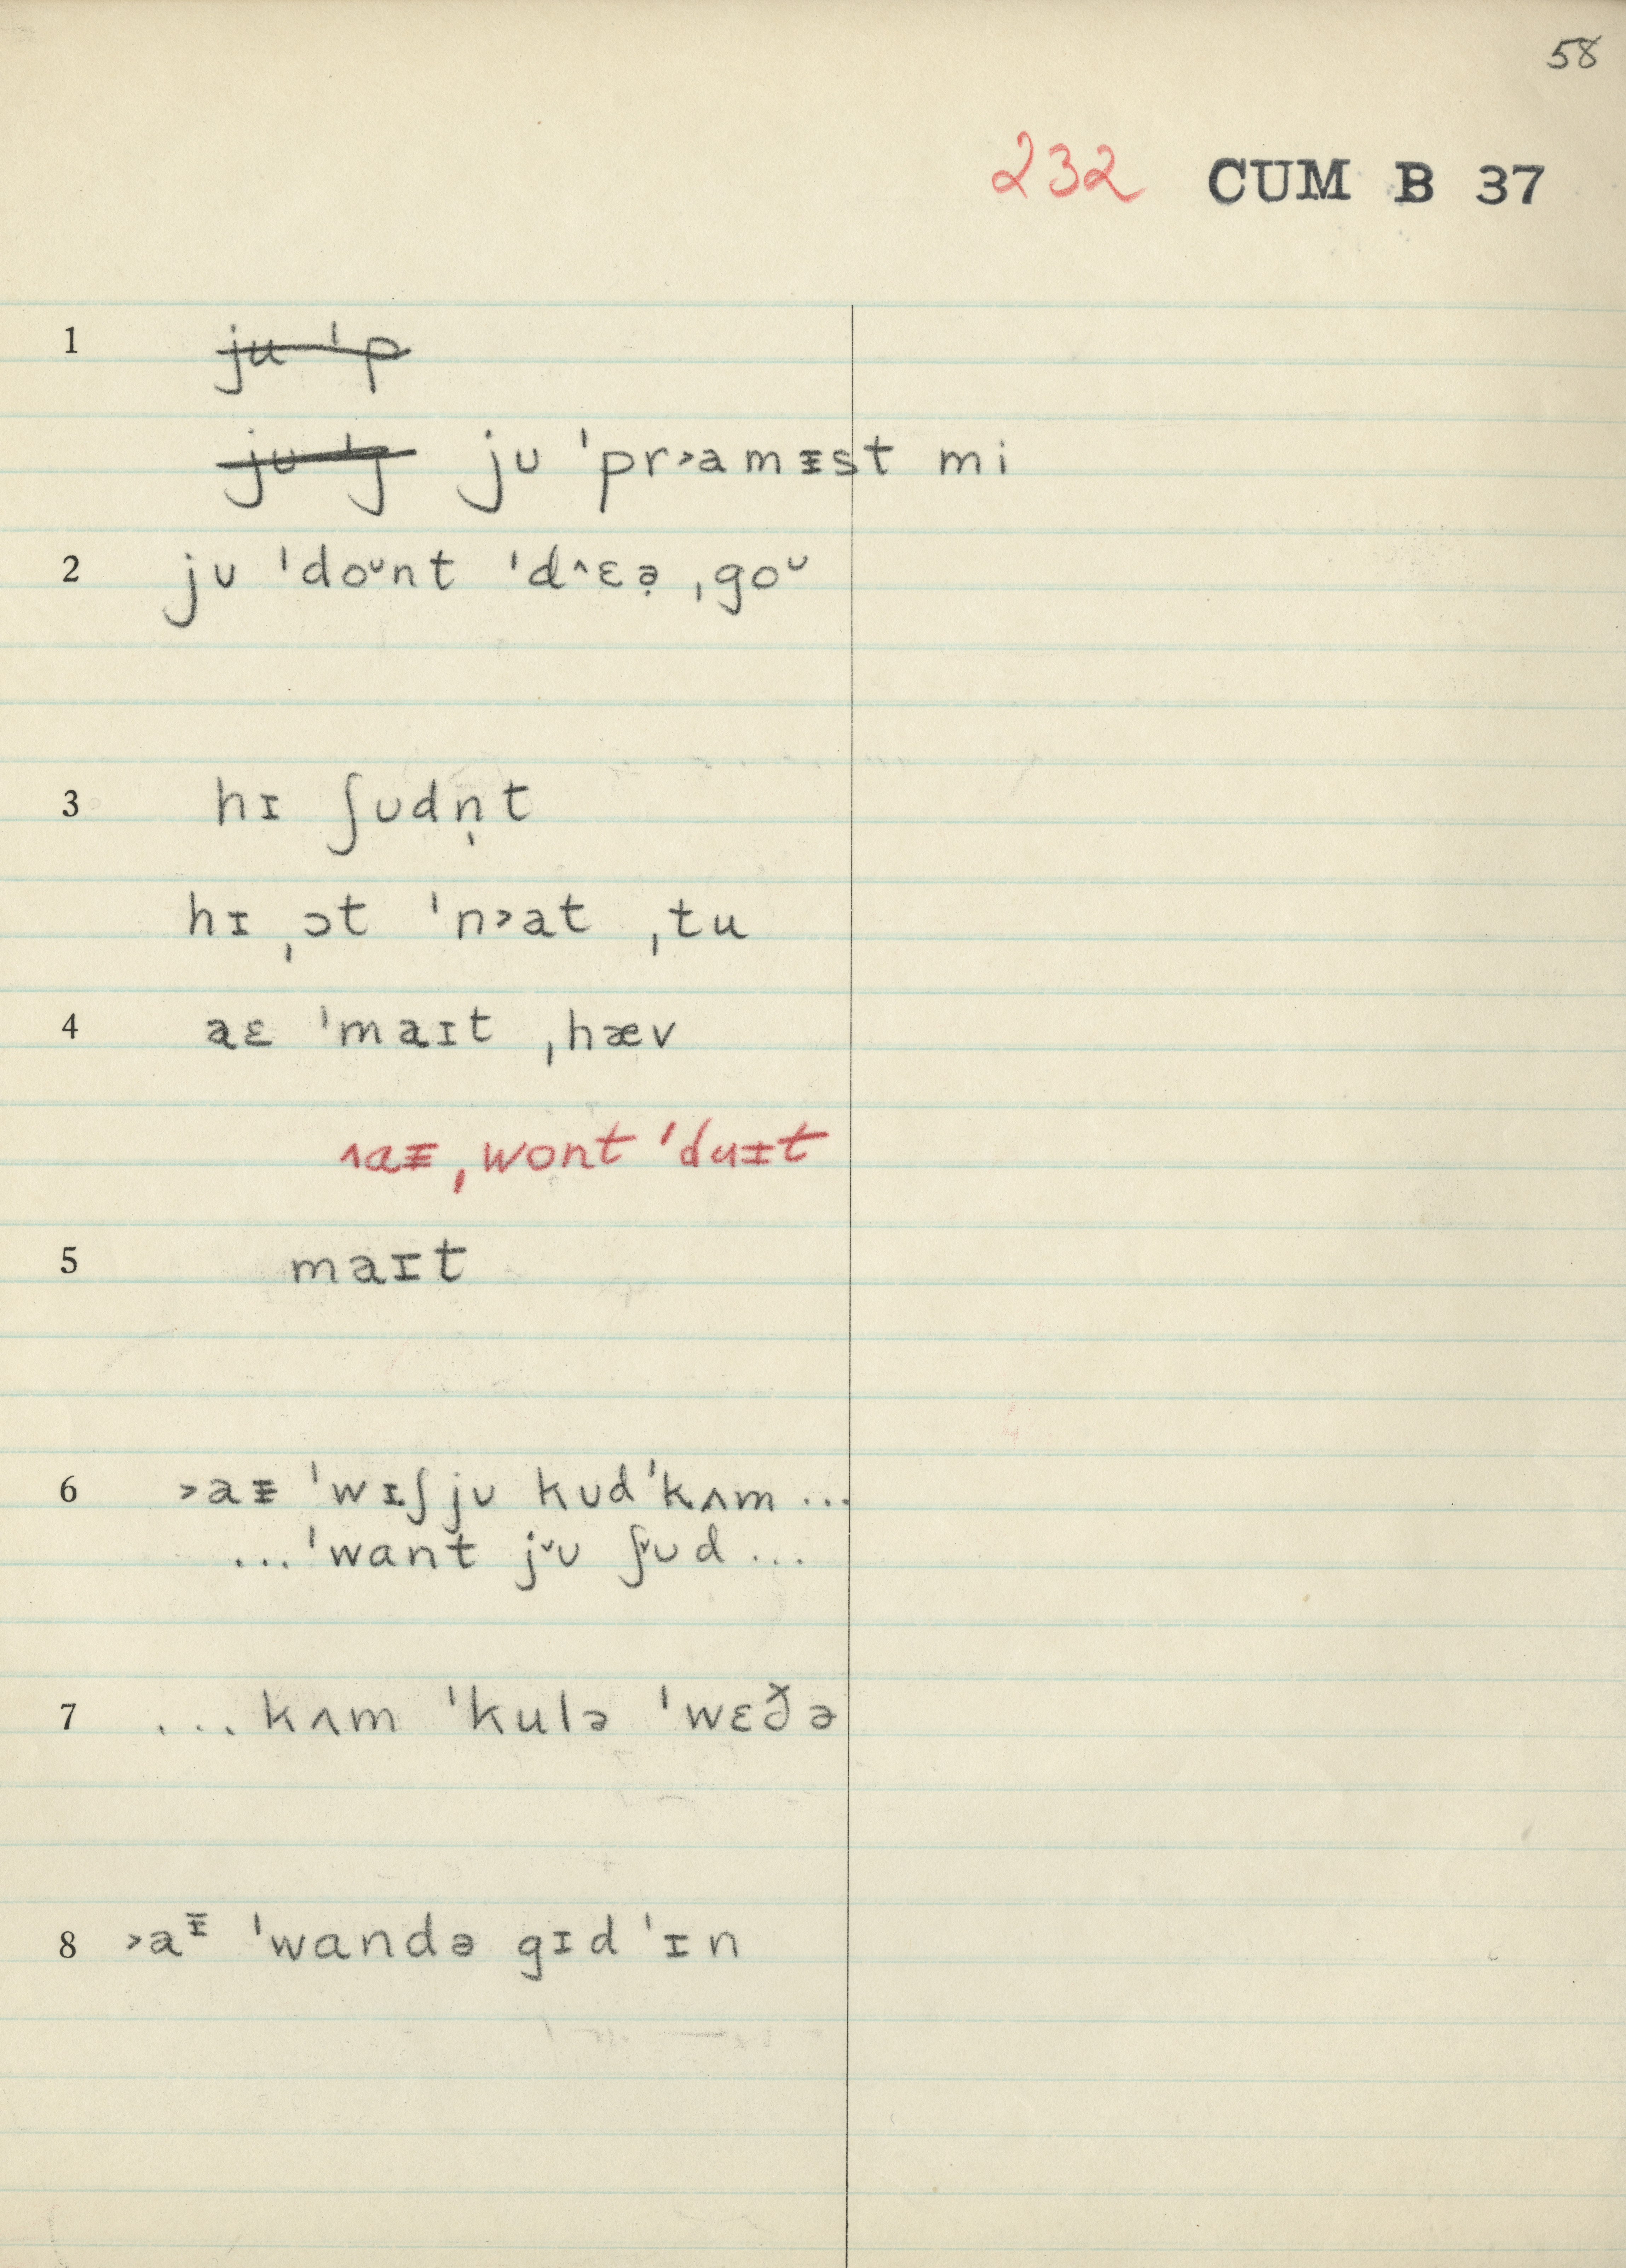 58
232 CUM B 37
1 ju ˈp
ju ˈj ju ˈpr˃amᵻst mi
2 jᴜ ˈdoᶸnt ˈd˄ɛə̣ ˌgoᶸ
3 hɪ ʃᴜdn̩t
hɪ ˌɔt ˈn˃at ˌtu
4 aɛ ˈmaɪt ˌhæv
˄aᵻ ˌwont ˈduɪt
5 maɪt
6 ˃aᵻ ˈwɪʃ jᴜ kᴜd ˈkʌm ...
... ˈwant j˅ᴜ ʃ˅ᴜd ...
7 ... kʌm ˈkulə ˈwɛðə
8 ˃aᵻ ˈwandə gɪd ˈɪn